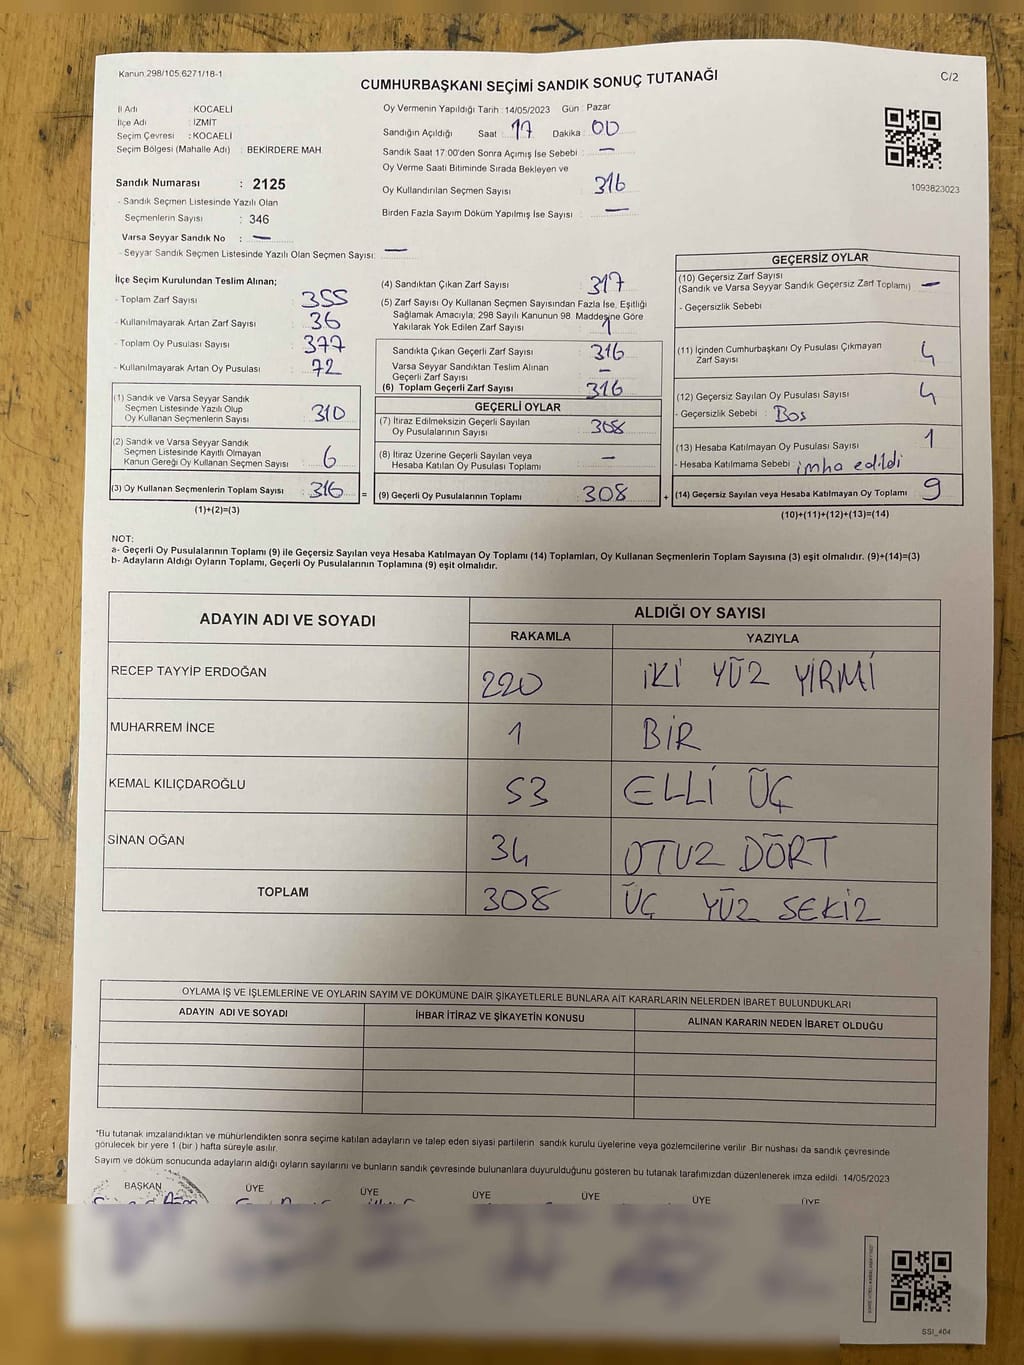 Kanun 298/105,6271/18-1
CUMHURBAŞKANI SEÇİMİ SANDIK SONUÇ TUTANAĞI
C/2
İl Adı : KOCAELİ
İlçe Adı : İZMİT
Seçim Çevresi : KOCAELİ
Seçim Bölgesi (Mahalle Adı) : BEKİRDERE MAH
Sandık Numarası : 2125
- Sandık Seçmen Listesinde Yazılı Olan
Seçmenlerin Sayısı : 346
Varsa Seyyar Sandık No : —
- Seyyar Sandık Seçmen Listesinde Yazılı Olan Seçmen Sayısı: —
Oy Vermenin Yapıldığı Tarih : 14/05/2023 Gün : Pazar
Sandığın Açıldığı Saat : 17 Dakika : 00
Sandık Saat 17:00'den Sonra Açımış İse Sebebi : —
Oy Verme Saati Bitiminde Sırada Bekleyen ve
Oy Kullandırılan Seçmen Sayısı 316
Birden Fazla Sayım Döküm Yapılmış İse Sayısı : —
1093823023
İlçe Seçim Kurulundan Teslim Alınan;
- Toplam Zarf Sayısı : 355
- Kullanılmayarak Artan Zarf Sayısı : 36
- Toplam Oy Pusulası Sayısı : 377
- Kullanılmayarak Artan Oy Pusulası : 72
(1) Sandık ve Varsa Seyyar Sandık
Seçmen Listesinde Yazılı Olup
Oy Kullanan Seçmenlerin Sayısı : 310
(2) Sandık ve Varsa Seyyar Sandık
Seçmen Listesinde Kayıtlı Olmayan
Kanun Gereği Oy Kullanan Seçmen Sayısı : 6
(3) Oy Kullanan Seçmenlerin Toplam Sayısı : 316
(1)+(2)=(3)
=
(4) Sandıktan Çıkan Zarf Sayısı : 317
(5) Zarf Sayısı Oy Kullanan Seçmen Sayısından Fazla İse, Eşitliği
Sağlamak Amacıyla; 298 Sayılı Kanunun 98. Maddesine Göre
Yakılarak Yok Edilen Zarf Sayısı : 1
Sandıkta Çıkan Geçerli Zarf Sayısı : 316
Varsa Seyyar Sandıktan Teslim Alınan
Geçerli Zarf Sayısı : —
(6) Toplam Geçerli Zarf Sayısı : 316
GEÇERLİ OYLAR
(7) İtiraz Edilmeksizin Geçerli Sayılan
Oy Pusulalarının Sayısı : 308
(8) İtiraz Üzerine Geçerli Sayılan veya
Hesaba Katılan Oy Pusulası Toplamı : —
(9) Geçerli Oy Pusulalarının Toplamı : 308
+
GEÇERSİZ OYLAR
(10) Geçersiz Zarf Sayısı
(Sandık ve Varsa Seyyar Sandık Geçersiz Zarf Toplamı) : —
- Geçersizlik Sebebi :
(11) İçinden Cumhurbaşkanı Oy Pusulası Çıkmayan
Zarf Sayısı : 4
(12) Geçersiz Sayılan Oy Pusulası Sayısı : 4
- Geçersizlik Sebebi : Boş
(13) Hesaba Katılmayan Oy Pusulası Sayısı : 1
- Hesaba Katılmama Sebebi : imha edildi
(14) Geçersiz Sayılan veya Hesaba Katılmayan Oy Toplamı : 9
(10)+(11)+(12)+(13)=(14)
NOT:
a- Geçerli Oy Pusulalarının Toplamı (9) ile Geçersiz Sayılan veya Hesaba Katılmayan Oy Toplamı (14) Toplamları, Oy Kullanan Seçmenlerin Toplam Sayısına (3) eşit olmalıdır. (9)+(14)=(3)
b- Adayların Aldığı Oyların Toplamı, Geçerli Oy Pusulalarının Toplamına (9) eşit olmalıdır.
ADAYIN ADI VE SOYADI ALDIĞI OY SAYISI
RAKAMLA YAZIYLA
RECEP TAYYİP ERDOĞAN 220 İKİ YÜZ YİRMİ
MUHARREM İNCE 1 BİR
KEMAL KILIÇDAROĞLU 53 ELLİ ÜÇ
SİNAN OĞAN 34 OTUZ DÖRT
TOPLAM 308 ÜÇ YÜZ SEKİZ
OYLAMA İŞ VE İŞLEMLERİNE VE OYLARIN SAYIM VE DÖKÜMÜNE DAİR ŞİKAYETLERLE BUNLARA AİT KARARLARIN NELERDEN İBARET BULUNDUKLARI
ADAYIN ADI VE SOYADI İHBAR İTİRAZ VE ŞİKAYETİN KONUSU ALINAN KARARIN NEDEN İBARET OLDUĞU
*Bu tutanak imzalandıktan ve mühürlendikten sonra seçime katılan adayların ve talep eden siyasi partilerin sandık kurulu üyelerine veya gözlemcilerine verilir. Bir nüshası da sandık çevresinde
görülecek bir yere 1 (bir) hafta süreyle asılır.
Sayım ve döküm sonucunda adayların aldığı oyların sayılarını ve bunların sandık çevresinde bulunanlara duyurulduğunu gösteren bu tutanak tarafımızdan düzenlenerek imza edildi. 14/05/2023
BAŞKAN ÜYE ÜYE ÜYE ÜYE ÜYE ÜYE
SSI_404